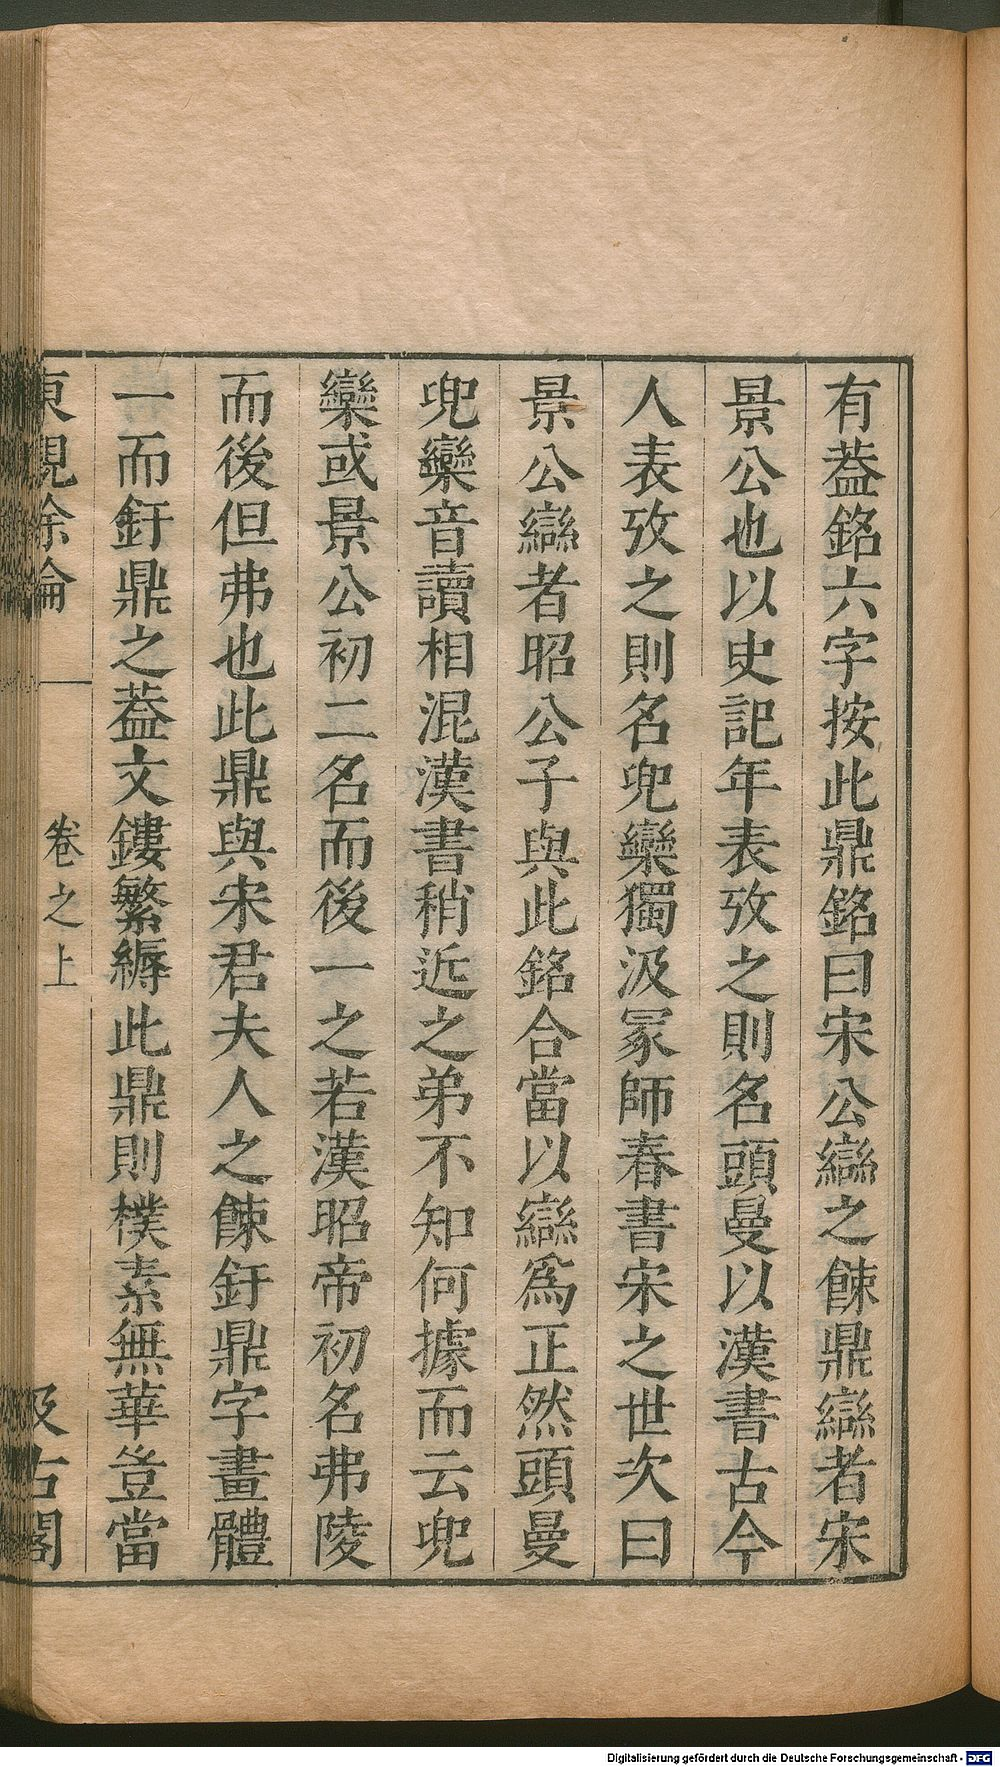 有葢銘六字按此鼎銘曰宋公䜌之餗鼎䜌者宋
景公也以史記年表攷之則名頭曼以漢書古今
人表攷之則名兜欒獨汲冢師春書宋之世次曰
景公䜌者昭公子與此銘合當以䜌爲正然頭曼
兜欒音讀相混漢書稍近之弟不知何據而云兜
欒或景公初二名而後一之若漢昭帝初名弗陵
而後但弗也此鼎與宋君夫人之餗釪鼎字畫體
一而釪鼎之葢文鏤繁縟此鼎則樸素無華豈當
東觀餘論
卷之上
汲古閣
Digitalisierung gefördert durch die Deutsche Forschungsgemeinschaft - DFG